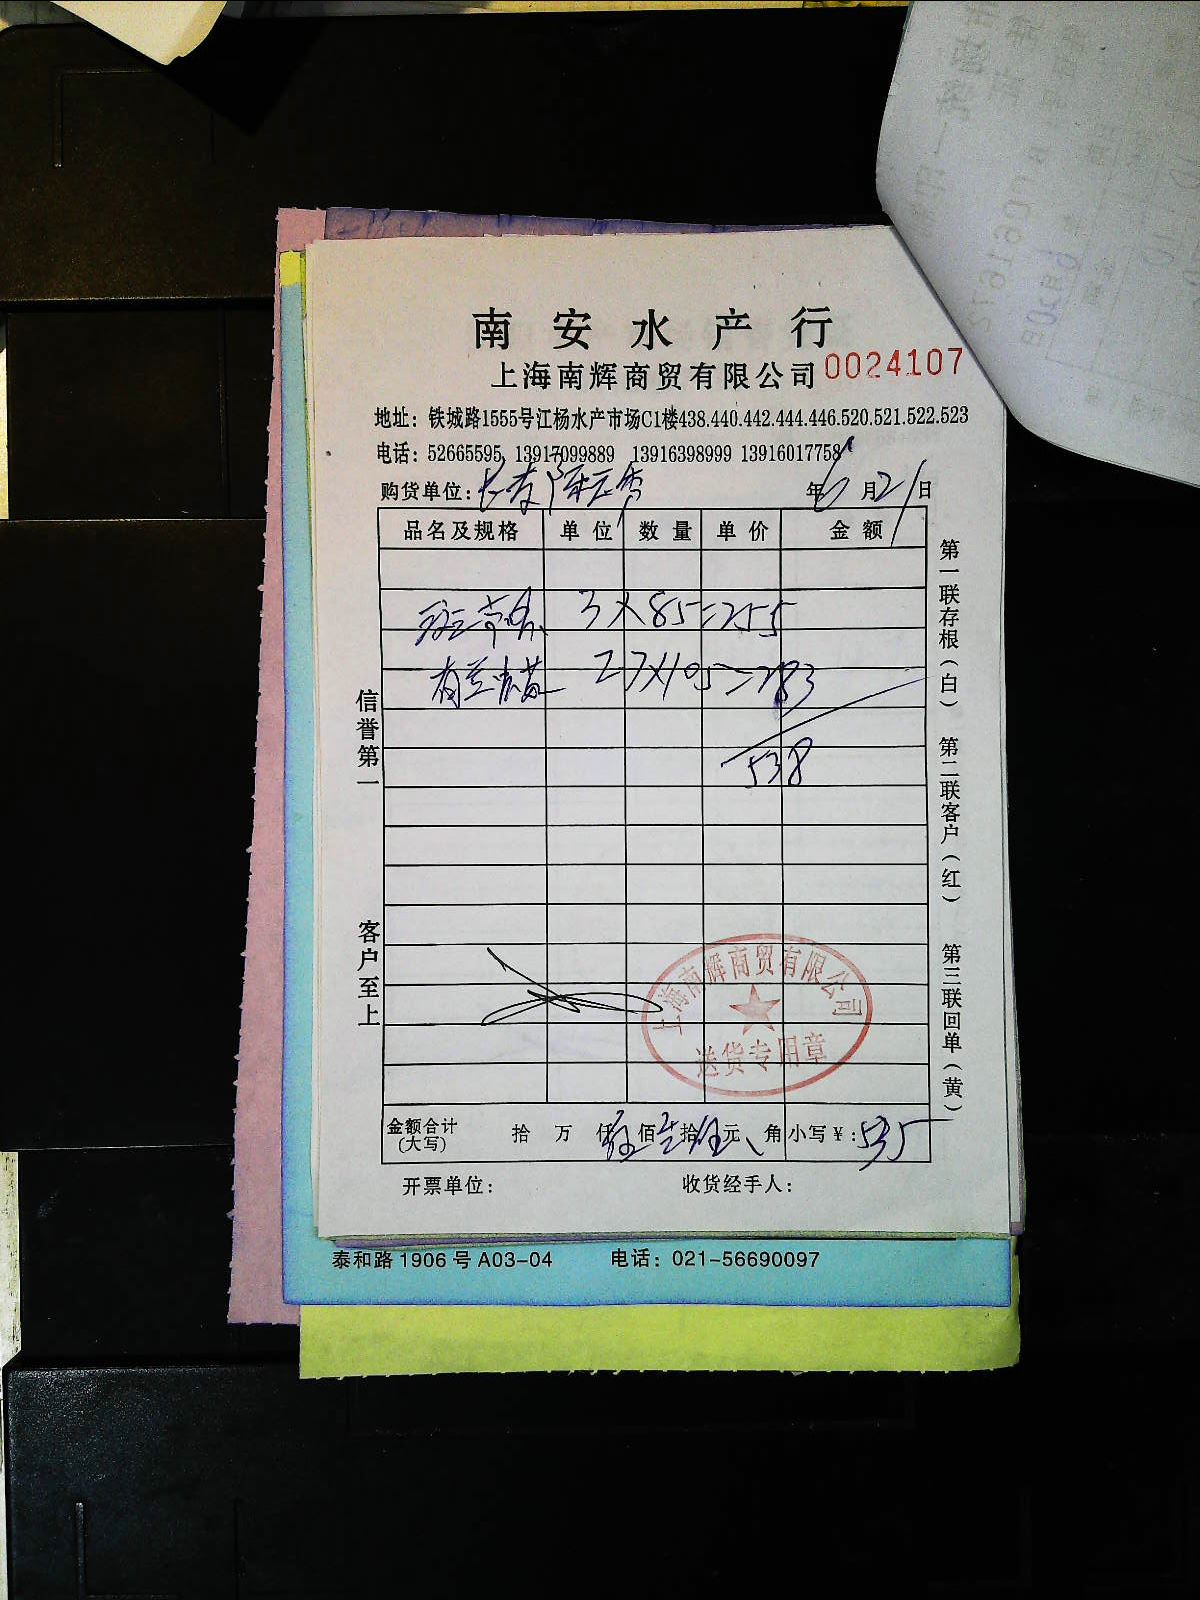 南安水产行
上海南辉商贸有限公司 0024107
地址：铁城路1555号江杨水产市场C1楼438.440.442.444.446.520.521.522.523
电话：52665595 13917099889 13916398999 13916017758
购货单位： 年 6 月 21 日
品名及规格 单位 数量 单价 金额
3×85=255
2.7×105=283
538
信誉第一
客户至上
第一联存根（白） 第二联客户（红） 第三联回单（黄）
上海南辉商贸有限公司
送货专用章
金额合计（大写） 拾 万 仟 伍 佰 叁 拾 伍 元 角 小写￥：535
开票单位： 收货经手人：
泰和路 1906 号 A03-04 电话：021-56690097